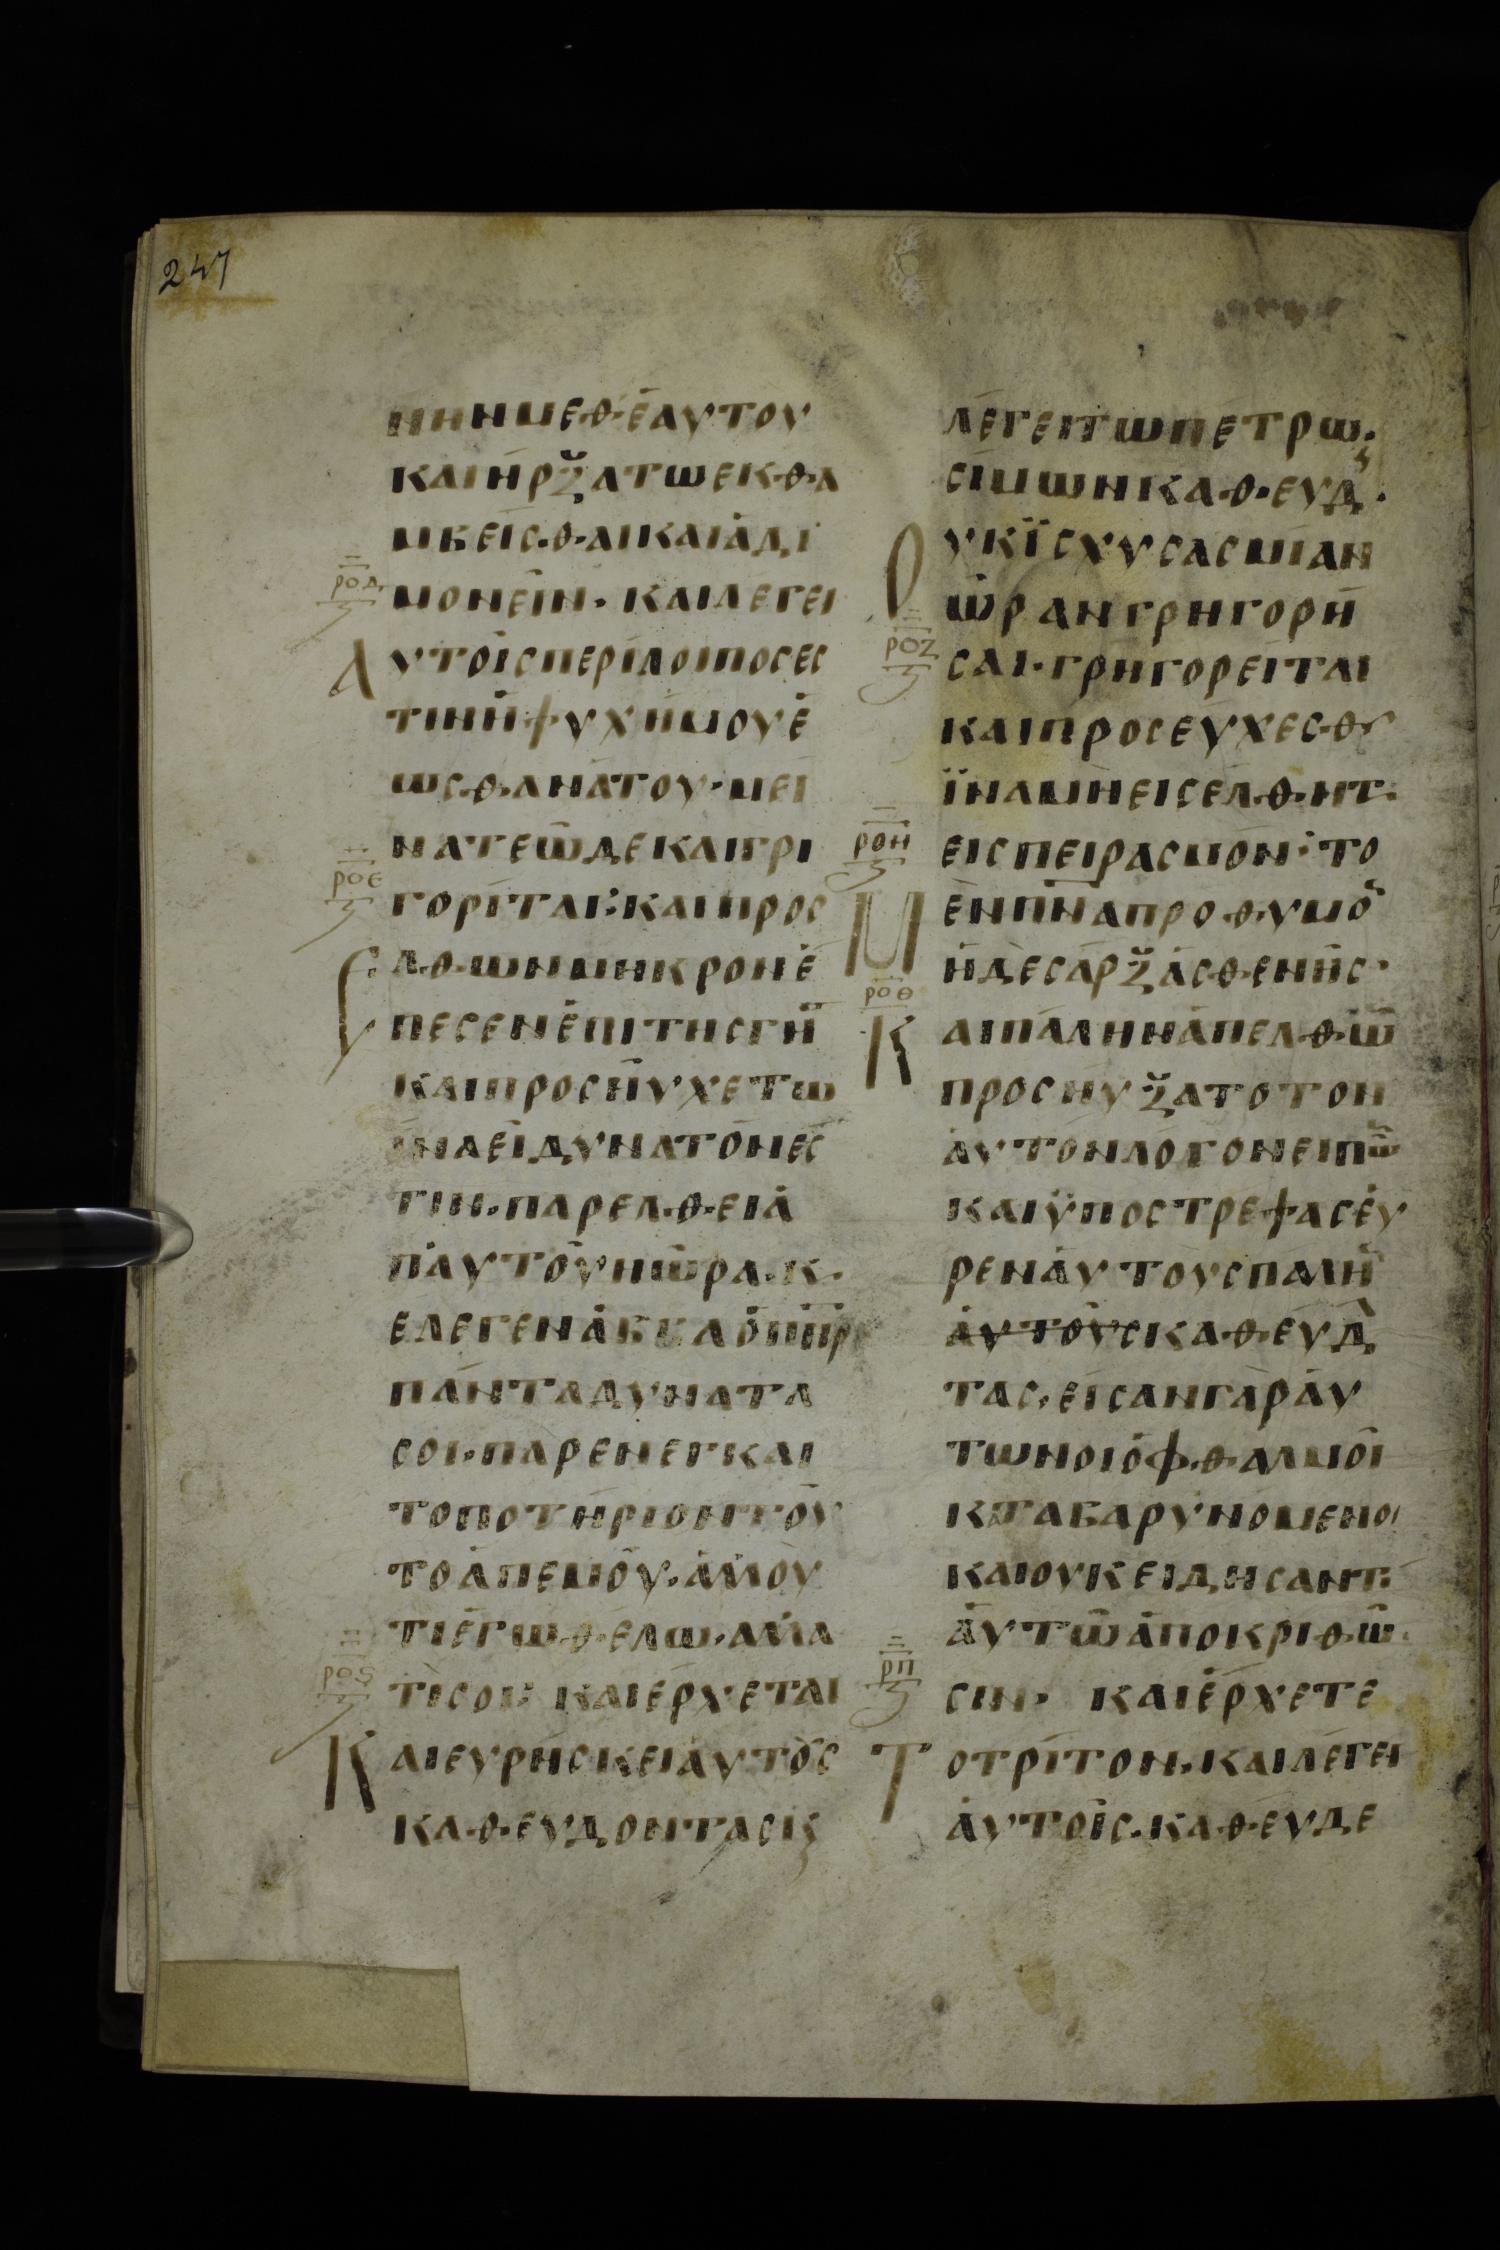 247
ΗΗΝΜΕΘ ἑΑΥΤΟΥ
ΚΑΙΗΡΞΑΤΩΕΚΘΑ
ΜΒΕΙΣΘΑΙΚΑΙΑΔΙ
ροδ
ΜΟΝΕΙΝ· ΚΑΙΛΕΓΕΙ
ΑΥΤΟΙΣΠΕΡΙΛΟΙΠΟΣΕΣ
ΤΙΝΗΨΥΧΗΜΟΥΕ
ΩΣΘΑΝΑΤΟΥ·ΜΕΙ
ΝΑΤΕΩΔΕΚΑΙΓΡΙ
ροε
ΓΟΡΙΤΑΙ:ΚΑΙΠΡΟΣ
ΕΛΘΩΝΜΗΚΡΟΝΕ
ΠΕΣΕΝΕΠΙΤΗΣΓΗ
ΚΑΙΠΡΟΣΗΥΧΕΤΩ
ΙΝΑΕΙΔΥΝΑΤΟΝΕΣ
ΤΙΝ·ΠΑΡΕΛΘΕΙΑ
ΠΑΥΤΟΥΗΩΡΑ·Κ·
ΕΛΕΓΕΝΑΒΒΑΟΠΗΡ
ΠΑΝΤΑΔΥΝΑΤΑ
ΣΟΙ·ΠΑΡΕΝΕΓΚΑΙ
ΤΟΠΟΤΗΡΙΟΝΤΟΥ
ΤΟΑΠΕΜΟΥ·ΑΛΛΟΥ
ΤΙΕΓΩΘΕΛΩ·ΑΛΛΑ
ροϛ
ΤΙΣΟΙ: ΚΑΙΕΡΧΕΤΑΙ
ΚΑΙΕΥΡΗΣΚΕΙΑΥΤΟΣ
ΚΑΘΕΥΔΟΝΤΑΣΚ
ΛΕΓΕΙΤΩΠΕΤΡΩ·
ΣΙΜΩΝΚΑΘΕΥΔ·
ΟΥΚΪΣΧΥΣΑΣΜΙΑΝ
ΩΡΑΝΓΡΗΓΟΡΗ
ροζ
ΣΑΙ·ΓΡΗΓΟΡΕΙΤΑΙ
ΚΑΙΠΡΟΣΕΥΧΕΣΘ
ΪΝΑΜΗΕΙΣΕΛΘΗΤ
ροη
ΕΙΣΠΕΙΡΑΣΜΟΝ·ΤΟ
ΜΕΝΠΝΑΠΡΟΘΥΜΟ
ΗΔΕΣΑΡΞΑΣΘΕΝΗΣ·
ροθ
ΚΑΙΠΑΛΗΝΑΠΕΛΘΩ
ΠΡΟΣΗΥΞΑΤΟΤΟΝ
ΑΥΤΟΝΛΟΓΟΝΕΙΠΩ
ΚΑΙΫΠΟΣΤΡΕΨΑΣΕΥ
ΡΕΝΑΥΤΟΥΣΠΑΛΗ
ΑΥΤΟΥΣΚΑΘΕΥΔ
ΤΑΣ·ΕΙΣΑΝΓΑΡΑΥ
ΤΩΝΟΙΟΦΘΑΛΜΟΙ
ΚΤΑΒΑΡΥΝΟΜΕΝΟΙ
ΚΑΙΟΥΚΕΙΔΗΣΑΝΤΙ
ΑΥΤΩΑΠΟΚΡΙΘΩ
ρπ
ΣΙΝ· ΚΑΙΕΡΧΕΤΕ
ΤΟΤΡΙΤΟΝ·ΚΑΙΛΕΓΕΙ
ΑΥΤΟΙΣ·ΚΑΘΕΥΔΕ